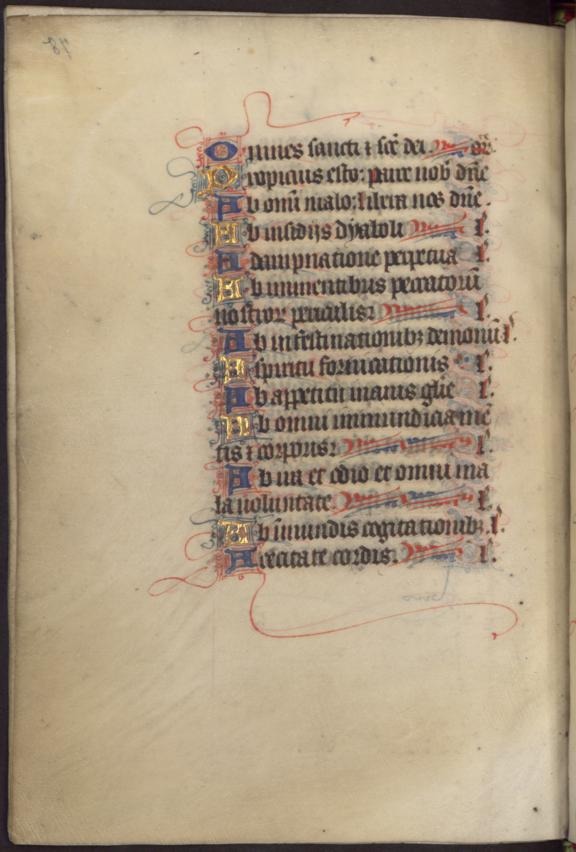 Omnes sancti ⁊ scē dei or̄.
Propicius esto: parce nob̄ dn̄e
Ab om̄i malo: libera nos dn̄e.
Ab insidijs dyaboli l̄.
A dampnatione perpetua l̄.
Ab iminentibus peccatorū
nostror̄ periculis: l̄.
Ab infestinationibꝫ demonū l̄.
A spiritu fornicationis l̄.
Ab appetitu inanis glīe l̄.
Ab omni inmundicia mē
tis ⁊ corporis: l̄.
Ab ira et odio et omni ma
la uoluntate l̄.
Ab īmundis cogitationibꝫ. l̄.
A cecitate cordis. l̄.